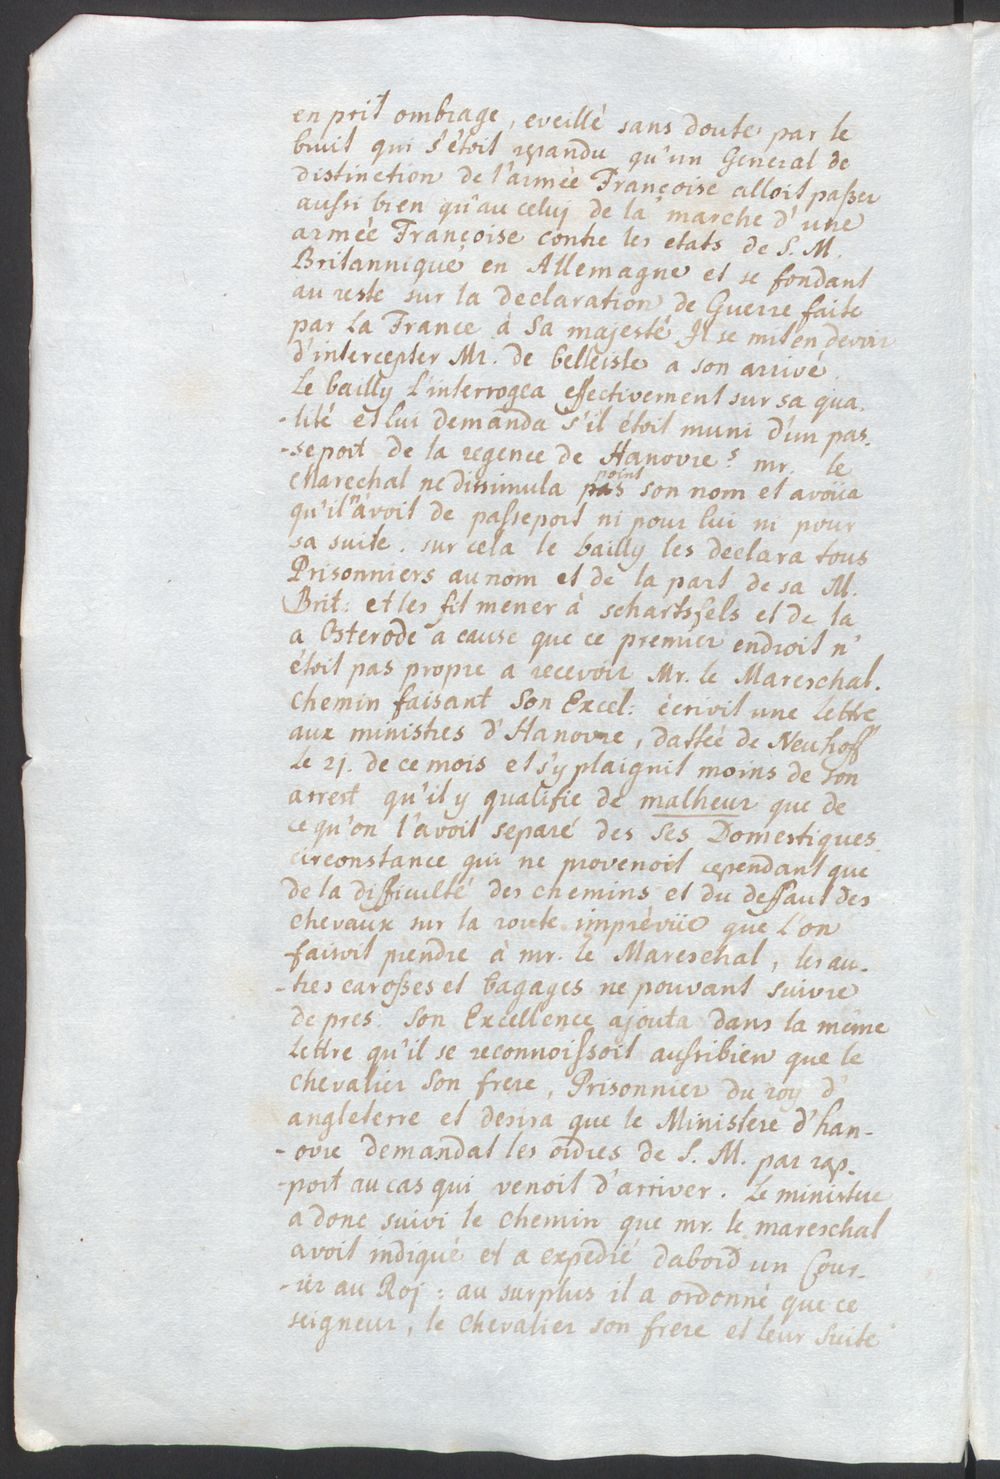 en prit ombrage, eveillé sans doute par le
bruit qui s'étoit repandu qu'un General de
distinction de l'armée Françoise alloit passer
aussi bien qu'au celuj de la marche d'une
armée Françoise contre les etats de S. M.
Britannique en Allemagne et se fondant
au reste sur la declaration de Guerre faite
par La France à Sa majesté Il se mit en devoir
d'intercepter Mr. de belleisle a son arrivé.
Le bailly l'interrogea effectivement sur sa qua-
-lité et lui demanda s'il étoit muni d'un pas-
-seport de la regence de Hanovre? mr. le
Marechal ne dissimula pas point son nom et avoüa
qu'il n'avoit de passeport ni pour lui ni pour
sa suite. sur cela le bailly les declara tous
Prisonniers au nom et de la part de sa M.
Brit: et les fit mener à schartsfels et de la
a Osterode a cause que ce premier endroit n'
étoit pas propre a recevoir Mr. le Mareschal.
Chemin faisant Son Excel: écrivit une lettre
aux ministres d'Hanovre, dattée de Neuhoff
le 21. de ce mois et s'y plaignit moins de son
arrest qu'il y qualifie de malheur que de
ce qu'on l'avoit separé des ses Domestiques
circonstance qui ne provenoit cependant que
de la difficulté des chemins et du deffaut des
chevaux sur la route imprévüe que l'on
faisoit prendre à mr. le Mareschal, les au-
-tres carosses et bagages ne pouvant suivre
de pres. Son Excellence ajouta dans la méme
lettre qu'il se reconnoissoit aussibien que le
chevalier son frere, Prisonnier du roy d'
angleterre et desira que le Ministere d'han-
-ovre demandat les ordres de S. M. par rap-
-port au cas qui venoit d'arriver. Le ministere
a donc suivi le chemin que mr. le mareschal
avoit indiqué et a expedié dabord un Cour-
-ier au Roj: au surplus il a ordonné que ce
seigneur, le chevalier son frere et leur suite